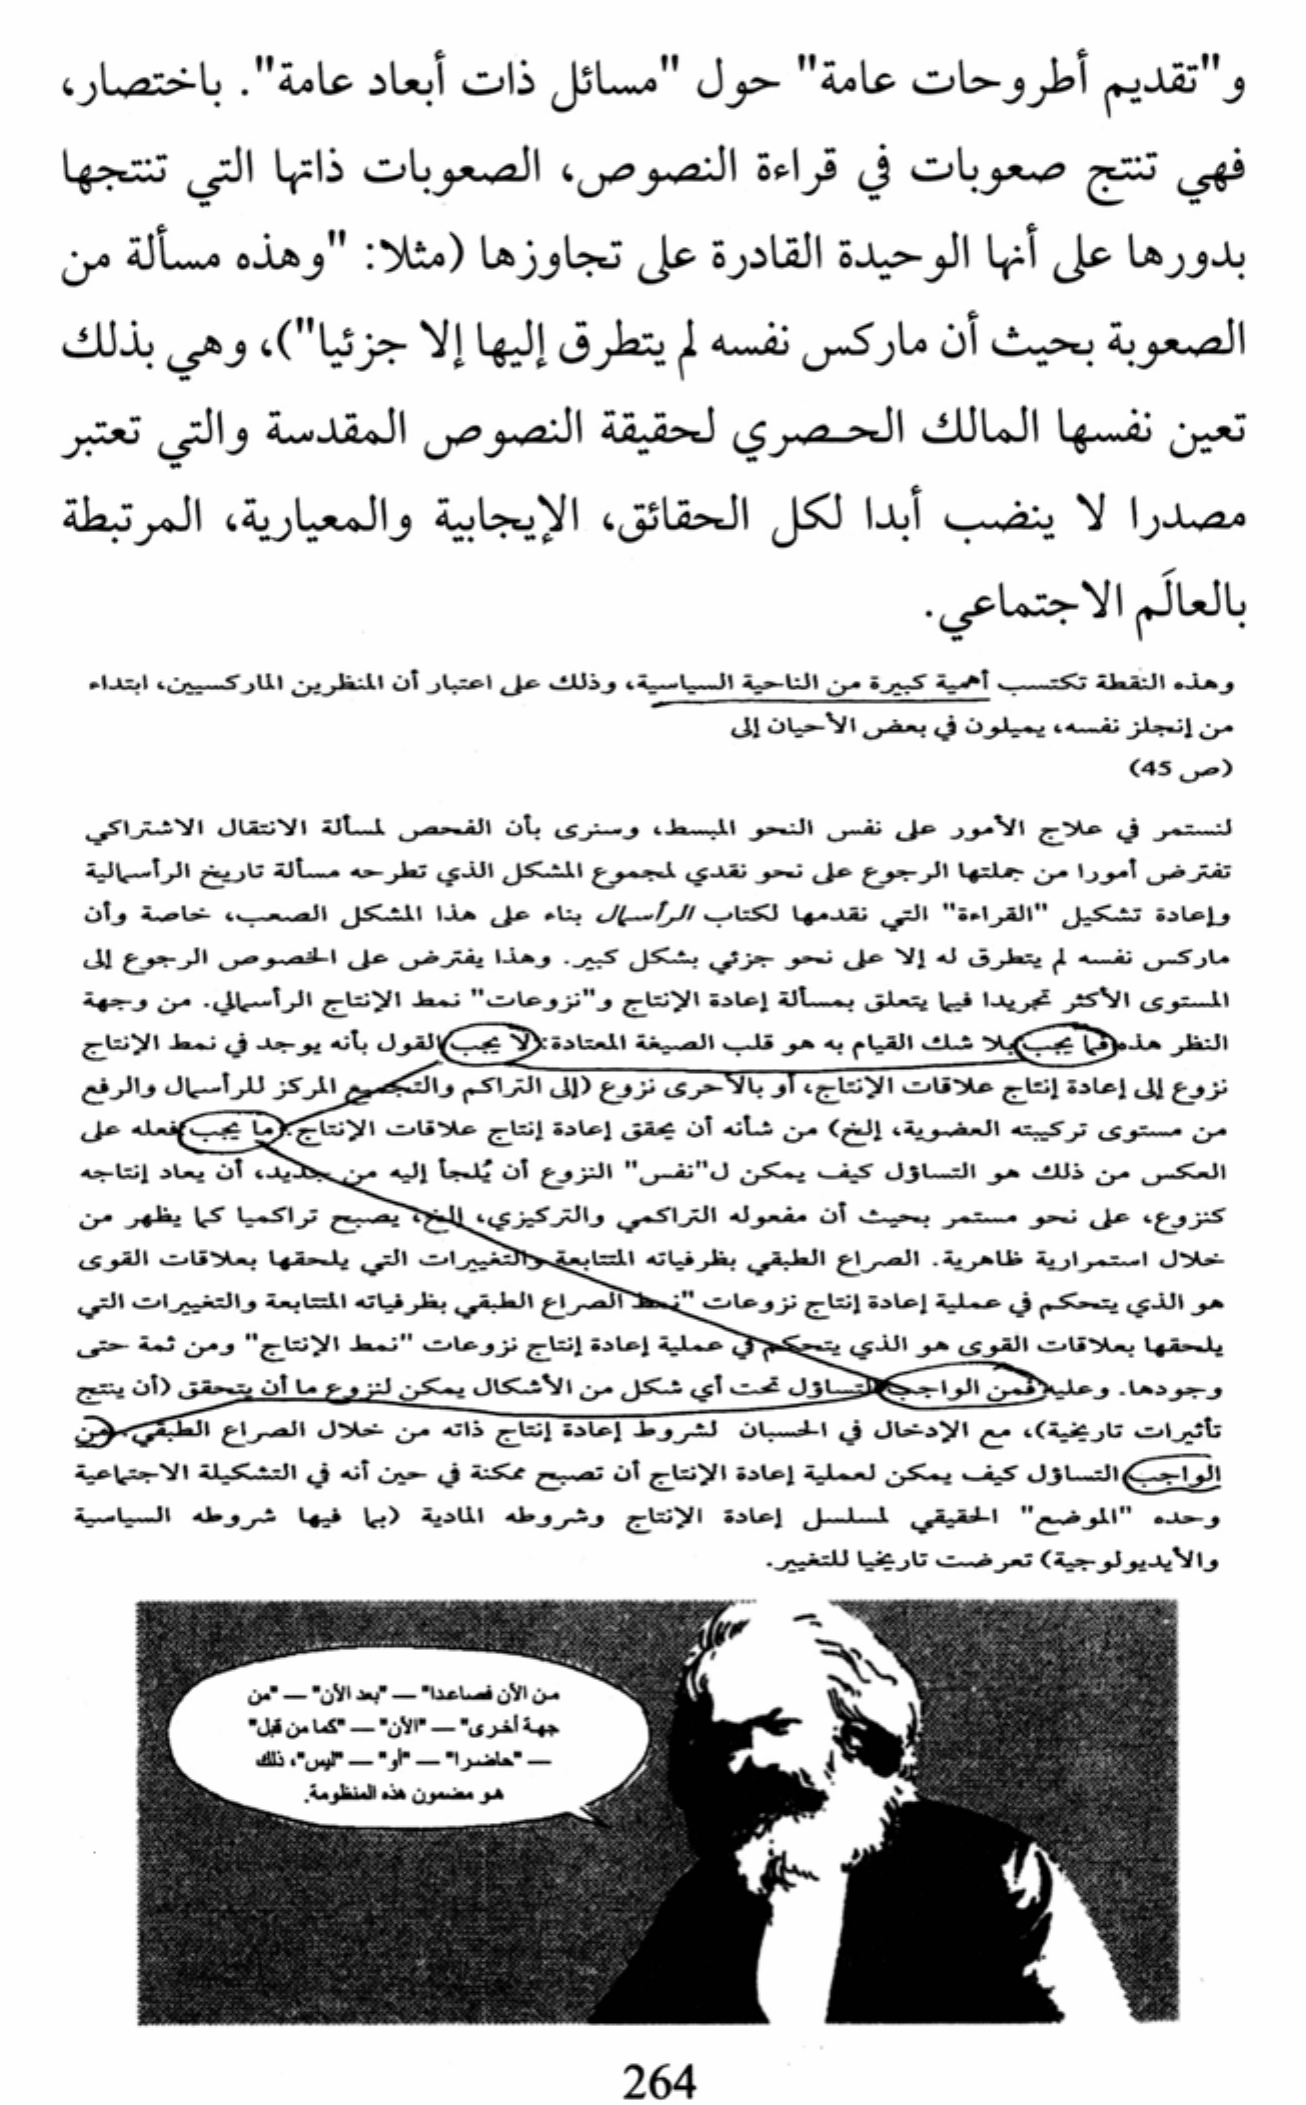 و"تقديم أطروحات عامة" حول "مسائل ذات أبعاد عامة". باختصار،
فهي تنتج صعوبات في قراءة النصوص، الصعوبات ذاتها التي تنتجها
بدورها على أنها الوحيدة القادرة على تجاوزها (مثلا: "وهذه مسألة من
الصعوبة بحيث أن ماركس نفسه لم يتطرق إليها إلا جزئيا")، وهي بذلك
تعين نفسها المالك الحصري لحقيقة النصوص المقدسة والتي تعتبر
مصدرا لا ينضب أبدا لكل الحقائق، الإيجابية والمعيارية، المرتبطة
بالعالَم الاجتماعي.
وهذه النقطة تكتسب أهمية كبيرة من الناحية السياسية، وذلك على اعتبار أن المنظرين الماركسيين، ابتداء
من إنجلز نفسه، يميلون في بعض الأحيان إلى
(ص 45)
لنستمر في علاج الأمور على نفس النحو المبسط، وسنرى بأن الفحص لمسألة الانتقال الاشتراكي
تفترض أمورا من جملتها الرجوع على نحو نقدي لمجموع المشكل الذي تطرحه مسألة تاريخ الرأسمالية
وإعادة تشكيل "القراءة" التي نقدمها لكتاب الرأسمال بناء على هذا المشكل الصعب، خاصة وأن
ماركس نفسه لم يتطرق له إلا على نحو جزئي بشكل كبير. وهذا يفترض على الخصوص الرجوع إلى
المستوى الأكثر تجريدا فيما يتعلق بمسألة إعادة الإنتاج و"نزوعات" نمط الإنتاج الرأسمالي. من وجهة
النظر هذه فما يجب بلا شك القيام به هو قلب الصيغة المعتادة: لا يجب القول بأنه يوجد في نمط الإنتاج
نزوع إلى إعادة إنتاج علاقات الإنتاج، أو بالأحرى نزوع (إلى التراكم والتجميع المركز للرأسمال والرفع
من مستوى تركيبته العضوية، إلخ) من شأنه أن يحقق إعادة إنتاج علاقات الإنتاج: ما يجب فعله على
العكس من ذلك هو التساؤل كيف يمكن ل"نفس" النزوع أن يُلجأ إليه من جديد، أن يعاد إنتاجه
كنزوع، على نحو مستمر بحيث أن مفعوله التراكمي والتركيزي، إلخ، يصبح تراكميا كما يظهر من
خلال استمرارية ظاهرية. الصراع الطبقي بظرفياته المتتابعة والتغييرات التي يلحقها بعلاقات القوى
هو الذي يتحكم في عملية إعادة إنتاج نزوعات "نمط الصراع الطبقي بظرفياته المتتابعة والتغييرات التي
يلحقها بعلاقات القوى هو الذي يتحكم في عملية إعادة إنتاج نزوعات "نمط الإنتاج" ومن ثمة حتى
وجودها. وعليه فمن الواجب التساؤل تحت أي شكل من الأشكال يمكن لنزوع ما أن يتحقق (أن ينتج
تأثيرات تاريخية)، مع الإدخال في الحسبان لشروط إعادة إنتاج ذاته من خلال الصراع الطبقي. من
الواجب التساؤل كيف يمكن لعملية إعادة الإنتاج أن تصبح ممكنة في حين أنه في التشكيلة الاجتماعية
وحده "الموضع" الحقيقي لمسلسل إعادة الإنتاج وشروطه المادية (بما فيها شروطه السياسية
والأيديولوجية) تعرضت تاريخيا للتغيير.
من الآن فصاعدا" — "بعد الآن" — "من
جهة أخرى" — "الآن" — "كما من قبل"
— "حاضرا" — "أو" — "ليس"، ذلك
هو مضمون هذه المنظومة.
264